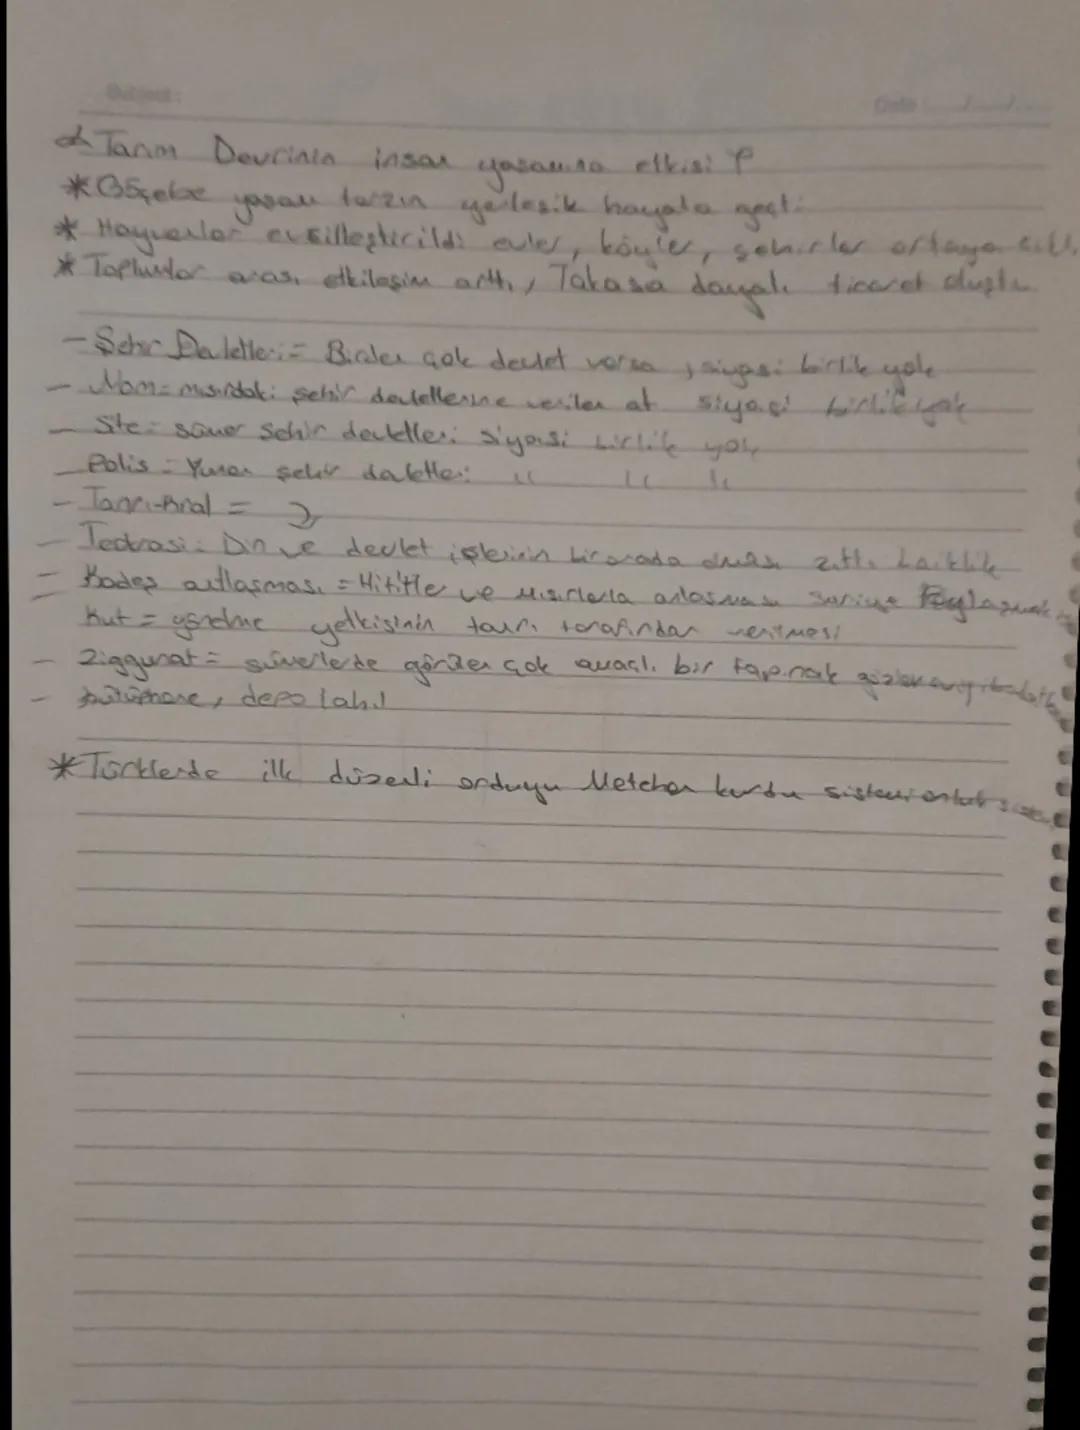 Subject:
Date
Tarım Devrinin insan yaşamına etkisi ?
* Göçebe yaşam tarzın yerleşik hayata geçti
* Hayvanlar evsilleştirildi evler, köyler, şehirler ortaya çıktı.
* Toplumlar arası etkileşim arttı, Takasa dayalı ticaret oluştu
- Şehir Devletleri = Birden çok devlet varsa, siyasi birlik yok
- Nom = mısırdaki şehir devletlerine verilen at siyasi birlik yok
- Site = sümer şehir devletleri siyasi birlik yok
- Polis = Yunan şehir devletleri " " "
- Tanrı-Kral =
- Teokrasi = Din ve devlet işlerinin bir arada olması zıttı Laiklik
= Kadeş antlaşması = Hititler ve Mısırlarla anlaşması Suriye Paylaşmak
Kut = yönetme yetkisinin tanrı tarafından verilmesi
- Ziggurat = sümerlerde görülen çok amaçlı bir tapınak gözlemevi ibadethane
- kütüphane, depo tahıl
* Türklerde ilk düzenli orduyu Metehan kurdu sistemi onluk sistem